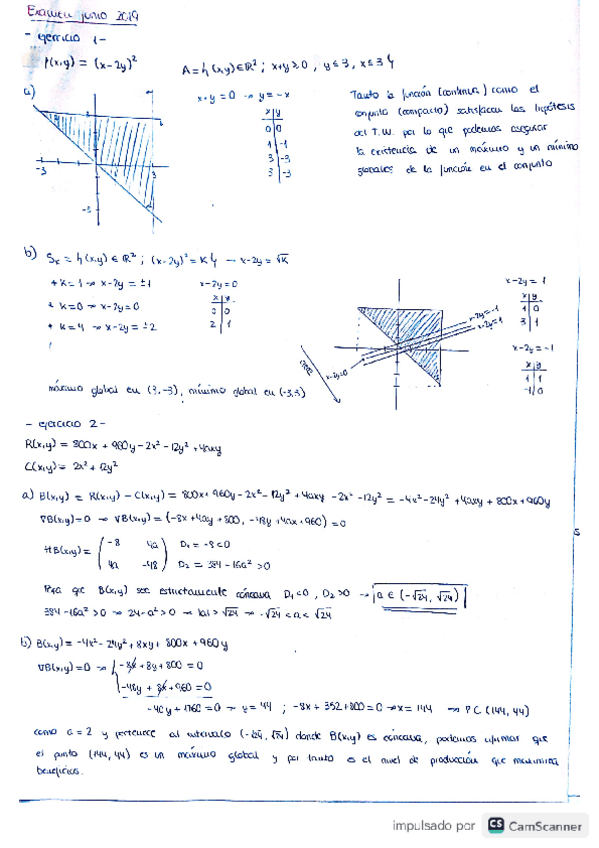 Examen junio 2019
- ejercicio 1-
f(x,y) = (x-2y)²
A = {(x,y) ∈ ℝ² ; x+y ≥ 0, y ≤ 3, x ≤ 3}
a)
x+y = 0 → y = -x
x y
0 0
1 -1
3 -3
3 -3
Tanto la función (continua) como el
conjunto (compacto) satisfacen las hipótesis
del T.W. por lo que podemos asegurar
la existencia de un máximo y un mínimo
globales de la función en el conjunto
-3
3
-3
b) Sk = {(x,y) ∈ ℝ² ; (x-2y)² = K} → x-2y = √K
* K=1 → x-2y = ±1
* K=0 → x-2y=0
* K=4 → x-2y = ±2
x-2y=0
x y
0 0
2 1
x-2y=-1
x-2y=1
x-2y=0
x-2y = 1
x y
1 0
3 1
x-2y = -1
x y
1 1
-1 0
máximo global en (3,-3), mínimo global en (-3,3)
- ejercicio 2-
R(x,y) = 800x + 960y - 2x² - 12y² + 4axy
C(x,y) = 2x² + 12y²
a) B(x,y) = R(x,y) - C(x,y) = 800x + 960y - 2x² - 12y² + 4axy - 2x² - 12y² = -4x² - 24y² + 4axy + 800x + 960y
∇B(x,y) = 0 → ∇B(x,y) = (-8x + 4ay + 800, -48y + 4ax + 960) = 0
HB(x,y) = ( -8 4a D₁ = -8 < 0
4a -48 ) D₂ = 384 - 16a² > 0
Para que B(x,y) sea estrictamente cóncava D₁<0, D₂>0 → a ∈ (-√24, √24)
384 - 16a² > 0 → 24 - a² > 0 → |a| > √24 → -√24 < a < √24
b) B(x,y) = -4x² - 24y² + 8xy + 800x + 960y
∇B(x,y) = 0 → { -8x + 8y + 800 = 0
-48y + 8x + 960 = 0
-40y + 1760 = 0 → y = 44 ; -8x + 352 + 800 = 0 → x = 144 → PC (144, 44)
como a = 2 y pertenece al intervalo (-√24, √24) donde B(x,y) es cóncava, podemos afirmar que
el punto (144, 44) es un máximo global y por tanto es el nivel de producción que maximiza
beneficios.
5
impulsado por CS CamScanner